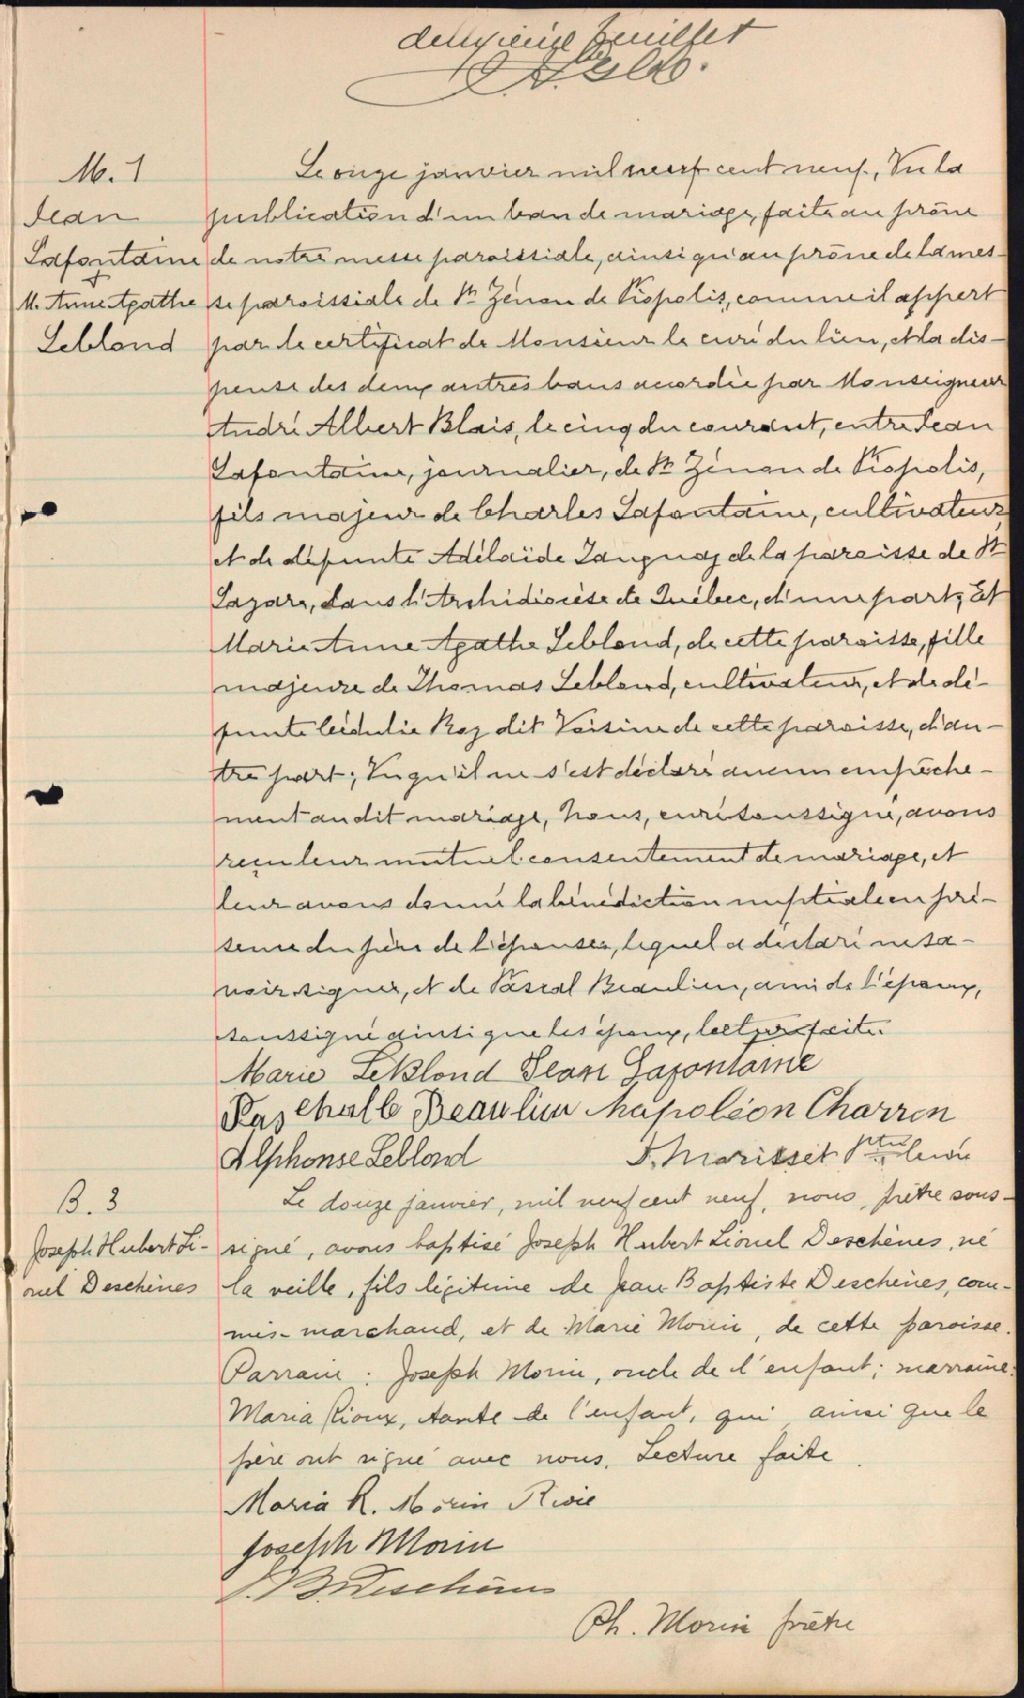 deuxième feuillet
M. 1
Jean
Lafontaine
+
M. Anne Agathe
Leblond
Le onze janvier mil neuf cent neuf, Vu la
publication d'un ban de mariage, faite au prône
de notre messe paroissiale, ainsi qu'au prône de la mes-
se paroissiale de St Zénon de Piopolis, comme il appert
par le certificat de Monsieur le curé du lieu, et la dis-
pense des deux autres bans accordée par Monseigneur
André Albert Blais, le cinq du courant, entre Jean
Lafontaine, journalier, de St Zénon de Piopolis,
fils majeur de Charles Lafontaine, cultivateur,
et de défunte Adélaïde Tanguay de la paroisse de St
Lazare, dans l'Archidiocèse de Québec, d'une part; Et
Marie Anne Agathe Leblond, de cette paroisse, fille
majeure de Thomas Leblond, cultivateur, et de dé-
funte Cédulie Roy dit Voisine de cette paroisse, d'au-
tre part; Vu qu'il ne s'est déclaré aucun empêche-
ment au dit mariage, Nous, curé soussigné, avons
reçu leur mutuel consentement de mariage, et
leur avons donné la bénédiction nuptiale en pré-
sence du père de l'épouse, lequel a déclaré ne sa-
voir signer, et de Pascal Beaulieu, ami de l'époux,
soussigné ainsi que les époux, lecture faite.
Marie LeBlond Jean Lafontaine
Paschalle Beaulieu Napoléon Charron
Alphonse Leblond J. Morisset Ptre Curé
B. 3
Joseph Hubert Li-
onel Deschènes
Le douze janvier, mil neuf cent neuf, nous, prêtre sous-
signé, avons baptisé Joseph Hubert Lionel Deschènes, né
la veille, fils légitime de Jean Baptiste Deschènes, com-
mis-marchand, et de Marie Morin, de cette paroisse.
Parrain : Joseph Morin, oncle de l'enfant; marraine:
Maria Rioux, tante de l'enfant, qui ainsi que le
père ont signé avec nous. Lecture faite.
Maria R. Morin
Joseph Morin
J. B. Deschènes
Ph. Morin prêtre